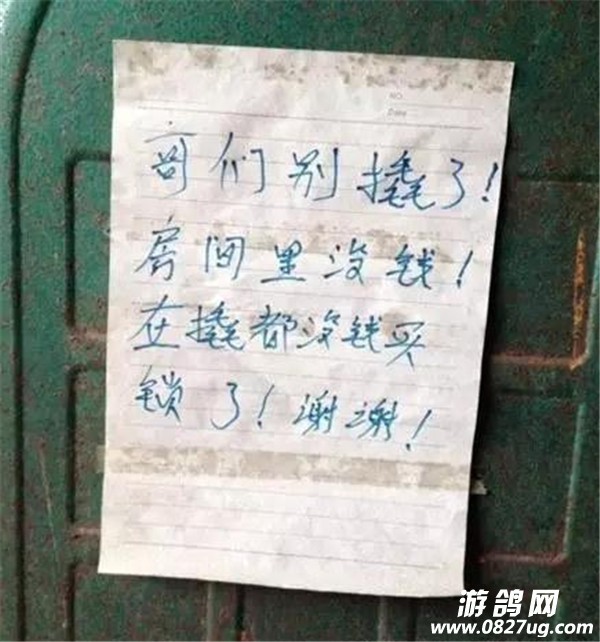 NO.
Date
哥们别撬了!
房间里没钱!
在撬都没钱买
锁了!谢谢!
游鸽网
www.0827ug.com